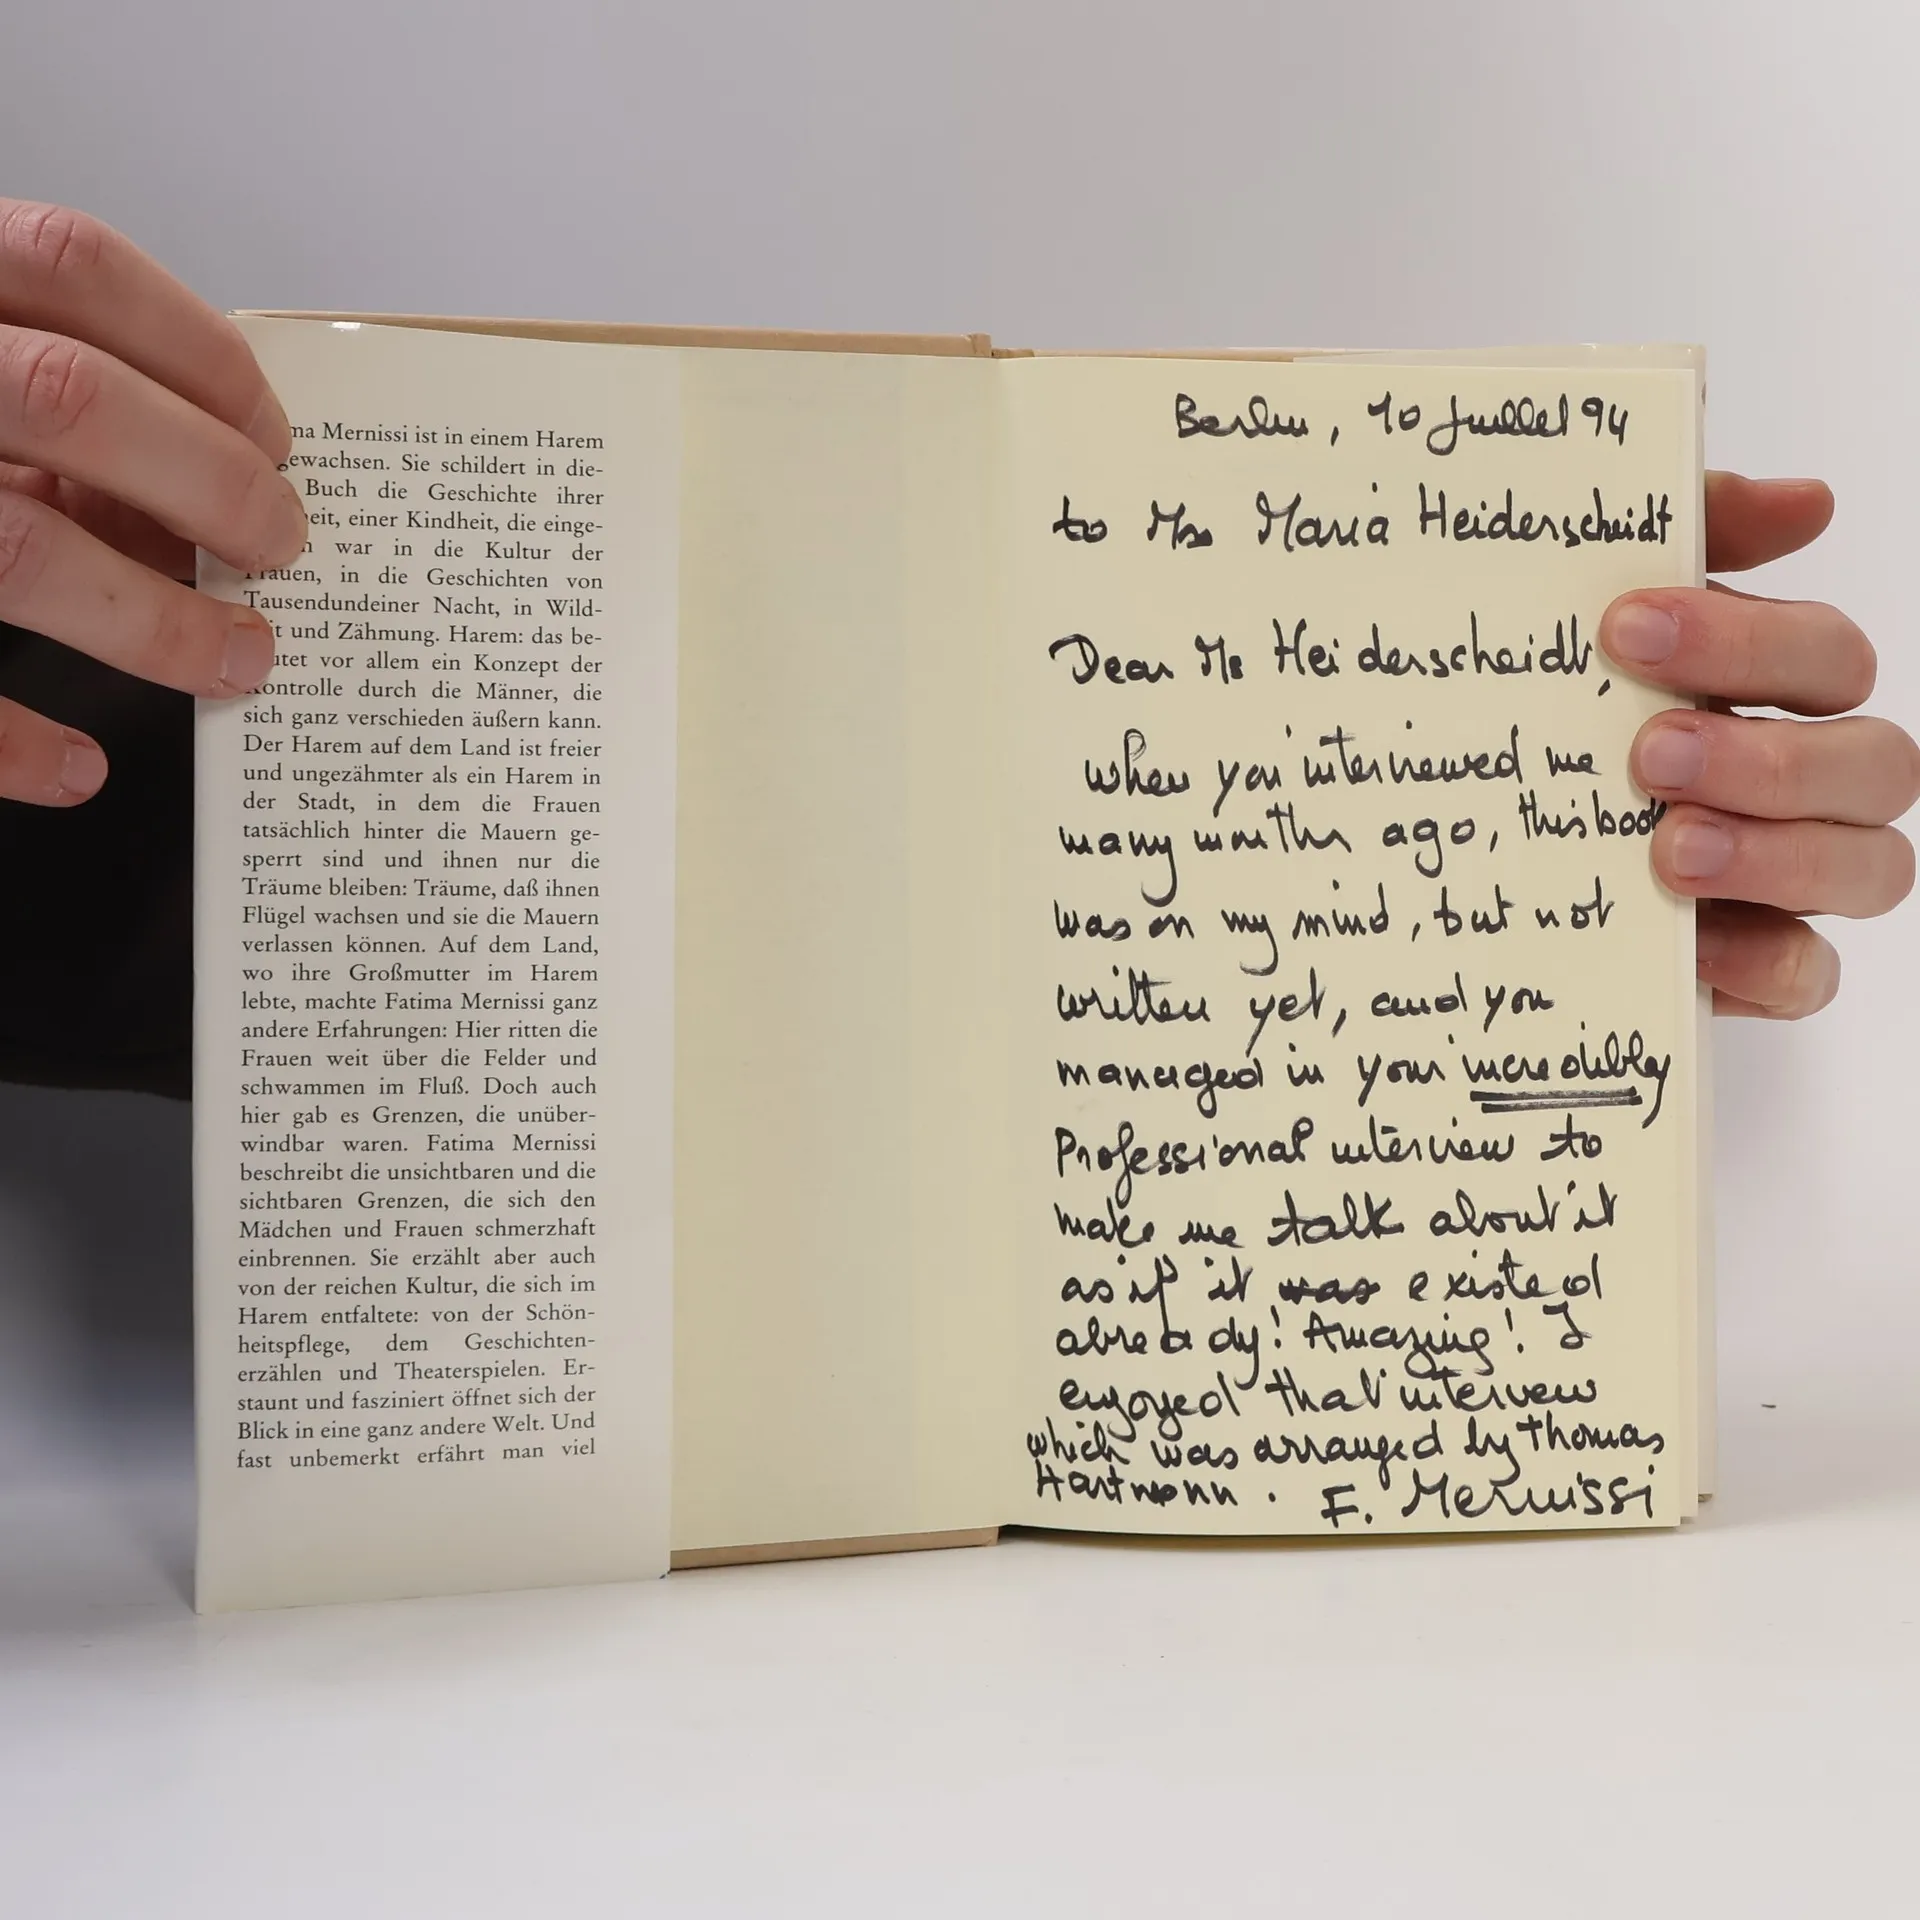 ma Mernissi ist in einem Harem
gewachsen. Sie schildert in die-
Buch die Geschichte ihrer
heit, einer Kindheit, die einge-
n war in die Kultur der
Frauen, in die Geschichten von
Tausendundeiner Nacht, in Wild-
it und Zähmung. Harem: das be-
utet vor allem ein Konzept der
Kontrolle durch die Männer, die
sich ganz verschieden äußern kann.
Der Harem auf dem Land ist freier
und ungezähmter als ein Harem in
der Stadt, in dem die Frauen
tatsächlich hinter die Mauern ge-
sperrt sind und ihnen nur die
Träume bleiben: Träume, daß ihnen
Flügel wachsen und sie die Mauern
verlassen können. Auf dem Land,
wo ihre Großmutter im Harem
lebte, machte Fatima Mernissi ganz
andere Erfahrungen: Hier ritten die
Frauen weit über die Felder und
schwammen im Fluß. Doch auch
hier gab es Grenzen, die unüber-
windbar waren. Fatima Mernissi
beschreibt die unsichtbaren und die
sichtbaren Grenzen, die sich den
Mädchen und Frauen schmerzhaft
einbrennen. Sie erzählt aber auch
von der reichen Kultur, die sich im
Harem entfaltete: von der Schön-
heitspflege, dem Geschichten-
erzählen und Theaterspielen. Er-
staunt und fasziniert öffnet sich der
Blick in eine ganz andere Welt. Und
fast unbemerkt erfährt man viel
Berlin, 10 Juillet 94
to Ms Maria Heiderscheidt
Dear Ms Heiderscheidt,
when you interviewed me
many months ago, this book
was on my mind, but not
written yet, and you
managed in your incredibley
Professional interview to
make me talk about it
as if it was existed
already! Amazing! I
enjoyed that interview
which was arranged by Thomas
Hartmann. F. Mernissi